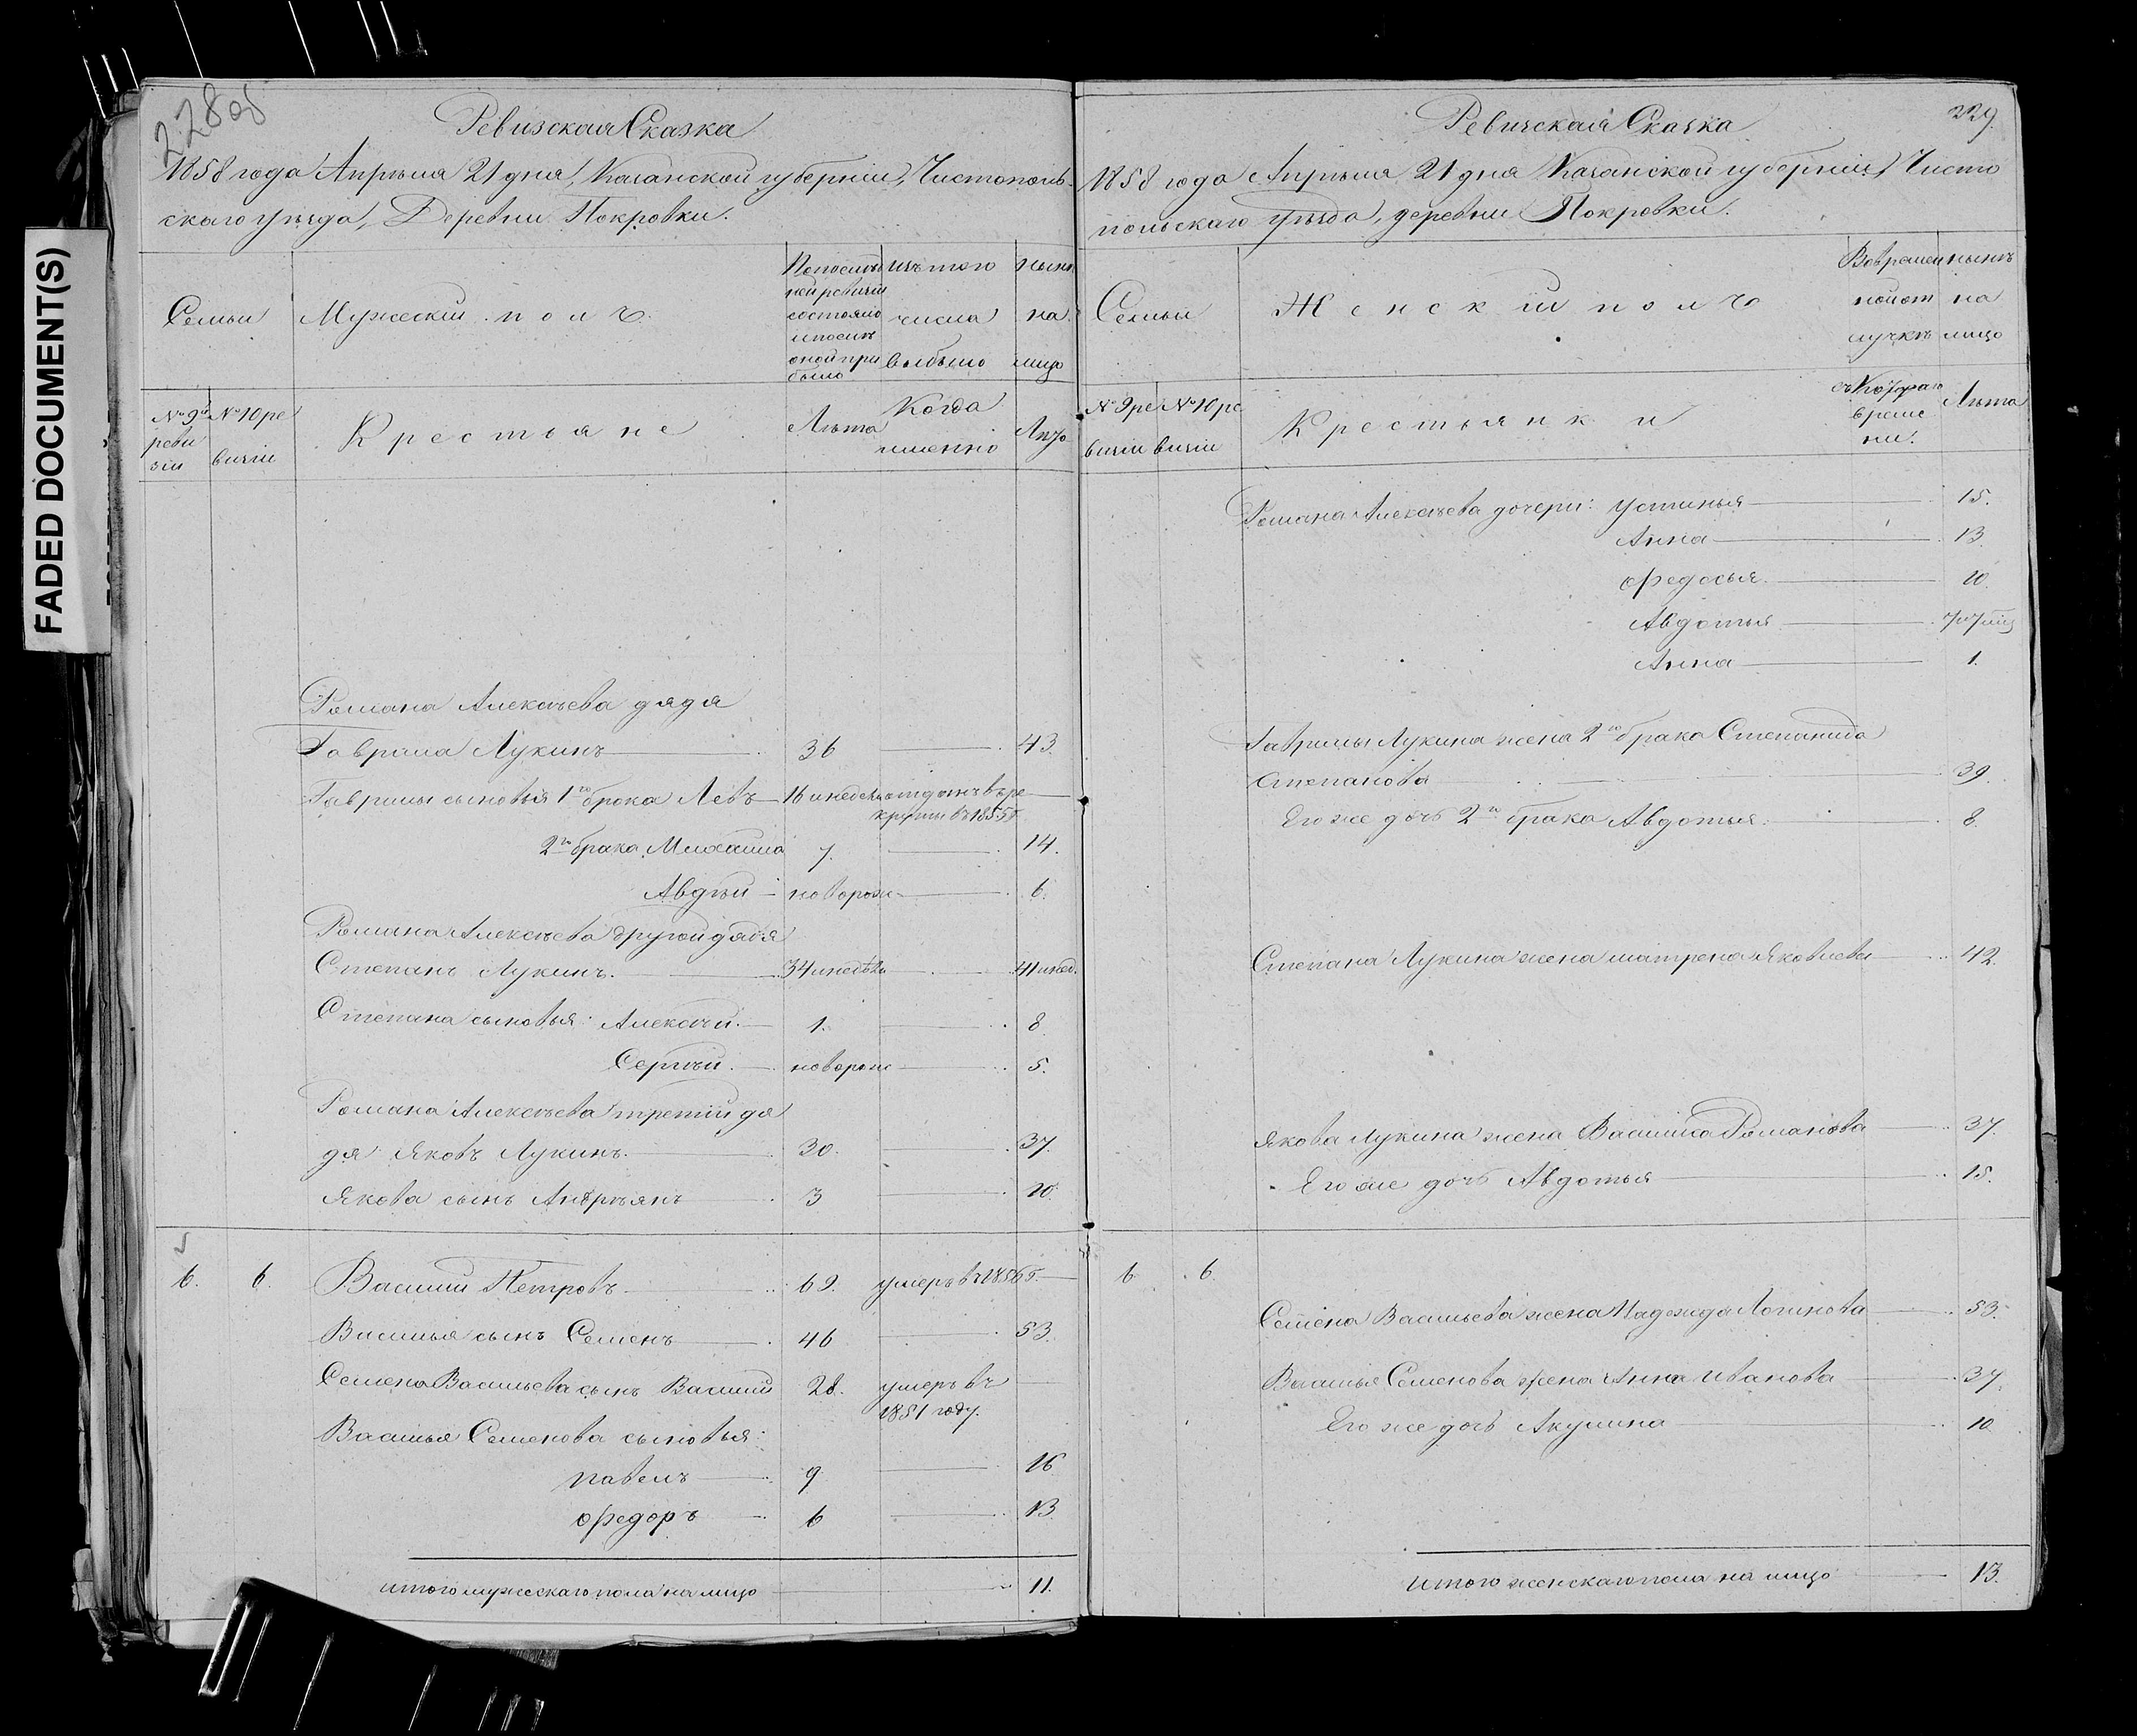 FADED DOCUMENT(S)
228об
Ревизская Сказка
1858 года Апрѣля 21 дня, Казанской губерніи, Чистополь-
скаго уѣзда, Деревни Покровки.
Семьи
Мужескій полъ.
По послѣд
ней ревизіи
состояло
и послѣ
оной при
было
изъ того
числа
выбыло
нынѣ
на
лицо
№ 9й
реви
зіи
№ 10 ре
визіи
Крестьяне
Лѣта
Когда
именно
Лѣта
Романа Алексѣева дядя
Гаврила Лукинъ 36 43.
Гаврилы сыновья 1го брака Левъ 16 и недѣль отданъ въ ре
круты въ 1855 г.
2го брака Михаила 7. 14.
Авдѣй новорож 6.
Романа Алексѣева другой дядя
Степанъ Лукинъ. 34 и недѣль 41 и нед.
Степана сыновья: Алексѣй. 1. 8
Сергѣй. новорож 5.
Романа Алексѣева третій дя
дя Яковъ Лукинъ. 30. 37.
Якова сынъ Андрѣянъ 3 10.
6. 6. Василій Петровъ 69. умеръ въ 1856 г.
Василья сынъ Семенъ 46 53.
Семена Васильева сынъ Василій 28. умеръ въ
1851 году.
Василья Семенова сыновья:
Павелъ 9. 16
Ѳедоръ 6 13.
итого мужескаго пола на лицо 11.
229.
Ревизская Сказка
1858 года Апрѣля 21 дня Казанской губерніи, Чисто
польскаго уѣзда, деревни Покровки.
Семьи
Женскій полъ
Во времен
ной от
лучкѣ
нынѣ
на
лицо
№ 9 ре
визіи
№ 10 ре
визіи
Крестьянки
съ котораго
време
ни.
Лѣта
Романа Алексѣева дочери: Устинья 15.
Анна 13
Ѳедосья. 10.
Авдотья 7 и 7 мѣс
Анна 1.
Гаврилы Лукина жена 2го брака Степанида
Степанова 39.
Его же дочь 2го брака Авдотья. 8.
Степана Лукина жена Матрена Яковлева 42.
Якова Лукина жена Василиса Романова 37.
Его же дочь Авдотья 15.
6 6.
Семена Васильева жена Надежда Логинова 53.
Василья Семенова жена Анна Иванова 37.
Его же дочь Акулина 10
итого женскаго пола на лицо 13.